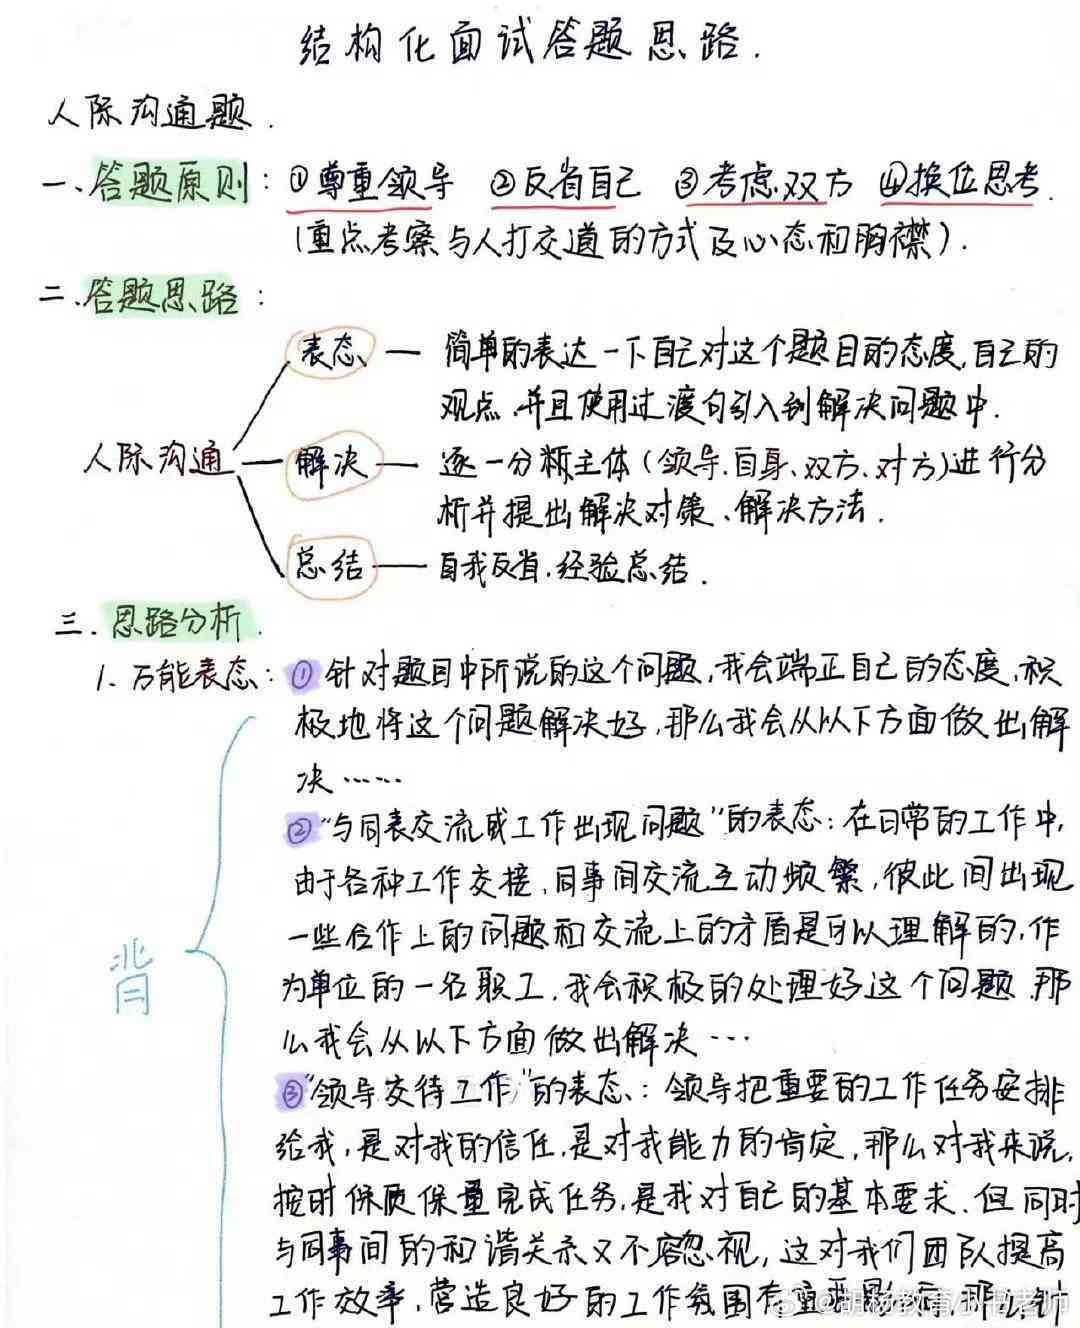 结构化面试答题思路.
人际沟通题.
一、答题原则：①尊重领导 ②反省自己 ③考虑双方 ④换位思考.
(重点考察与人打交道的方式及心态和胸襟).
二、答题思路：
表态 — 简单的表达一下自己对这个题目的态度,自己的
观点,并且使用过渡句引入到解决问题中.
人际沟通 解决 — 逐一分析主体(领导.自身、双方、对方)进行分
析并提出解决对策、解决方法.
总结 — 自我反省.经验总结.
三.思路分析.
1.万能表态：①针对题目中所说的这个问题,我会端正自己的态度,积
极地将这个问题解决好,那么我会从以下方面做出解
决……
②“与同表交流或工作出现问题”的表态：在日常的工作中,
由于各种工作交接、同事间交流互动频繁,彼此间出现
一些合作上的问题和交流上的矛盾是可以理解的,作
背
为单位的一名职工,我会积极的处理好这个问题,那
么我会从以下方面做出解决…
③“领导交待工作”的表态：领导把重要的工作任务安排
给我,是对我的信任,是对我能力的肯定,那么对我来说,
按时保质保量完成任务,是我对自己的基本要求.但同时
与同事间的和谐关系又不容忽视,这对我们团队提高
工作效率,营造良好的工作氛围有重要影响,那么针
@胡杨教育小书老师